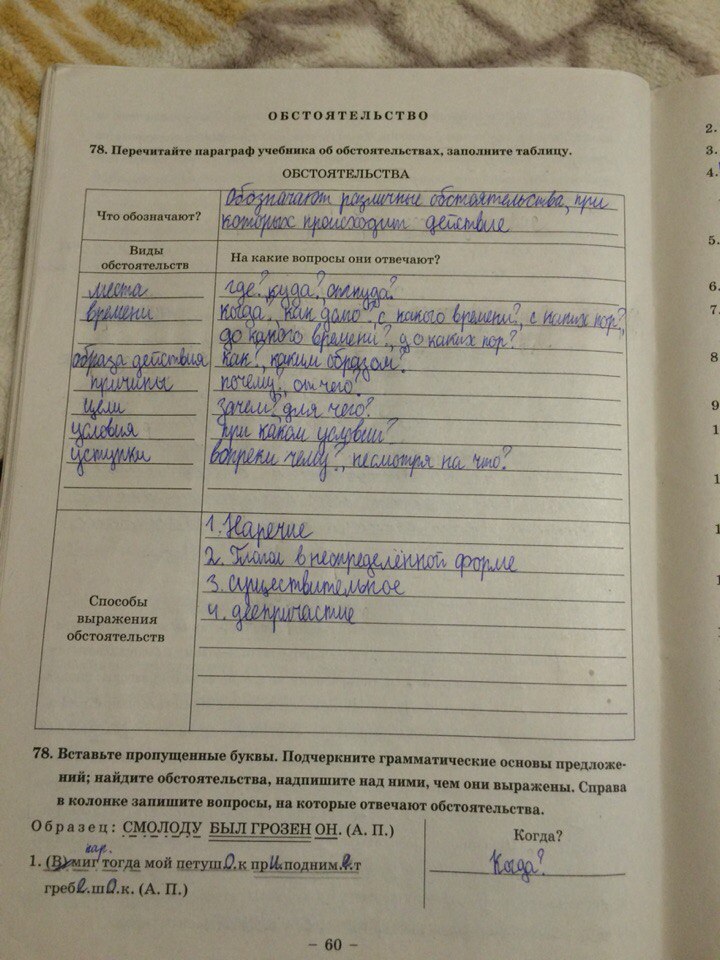 ОБСТОЯТЕЛЬСТВО
78. Перечитайте параграф учебника об обстоятельствах, заполните таблицу.
ОБСТОЯТЕЛЬСТВА
Что обозначают?
Обозначают различные обстоятельства, при
которых происходит действие
Виды
обстоятельств
На какие вопросы они отвечают?
места
где?, куда?, откуда?
времени
когда?, как долго?, с какого времени?, с каких пор?,
до какого времени?, до каких пор?
образа действия
как?, каким образом?
причины
почему?, от чего?
цели
зачем? для чего?
условия
при каком условии?
уступки
вопреки чему?, несмотря на что?
Способы
выражения
обстоятельств
1. Наречие
2. Глагол в неопределённой форме
3. существительное
4. деепричастие
78. Вставьте пропущенные буквы. Подчеркните грамматические основы предложе-
ний; найдите обстоятельства, надпишите над ними, чем они выражены. Справа
в колонке запишите вопросы, на которые отвечают обстоятельства.
Образец: СМОЛОДУ БЫЛ ГРОЗЕН ОН. (А. П.)
Когда?
нар.
1. (В) миг тогда мой петушок приподнимет
Когда?
гребешок. (А. П.)
– 60 –
2.
3.
4.
5.
6.
7.
8
9
1
1
1
1
1